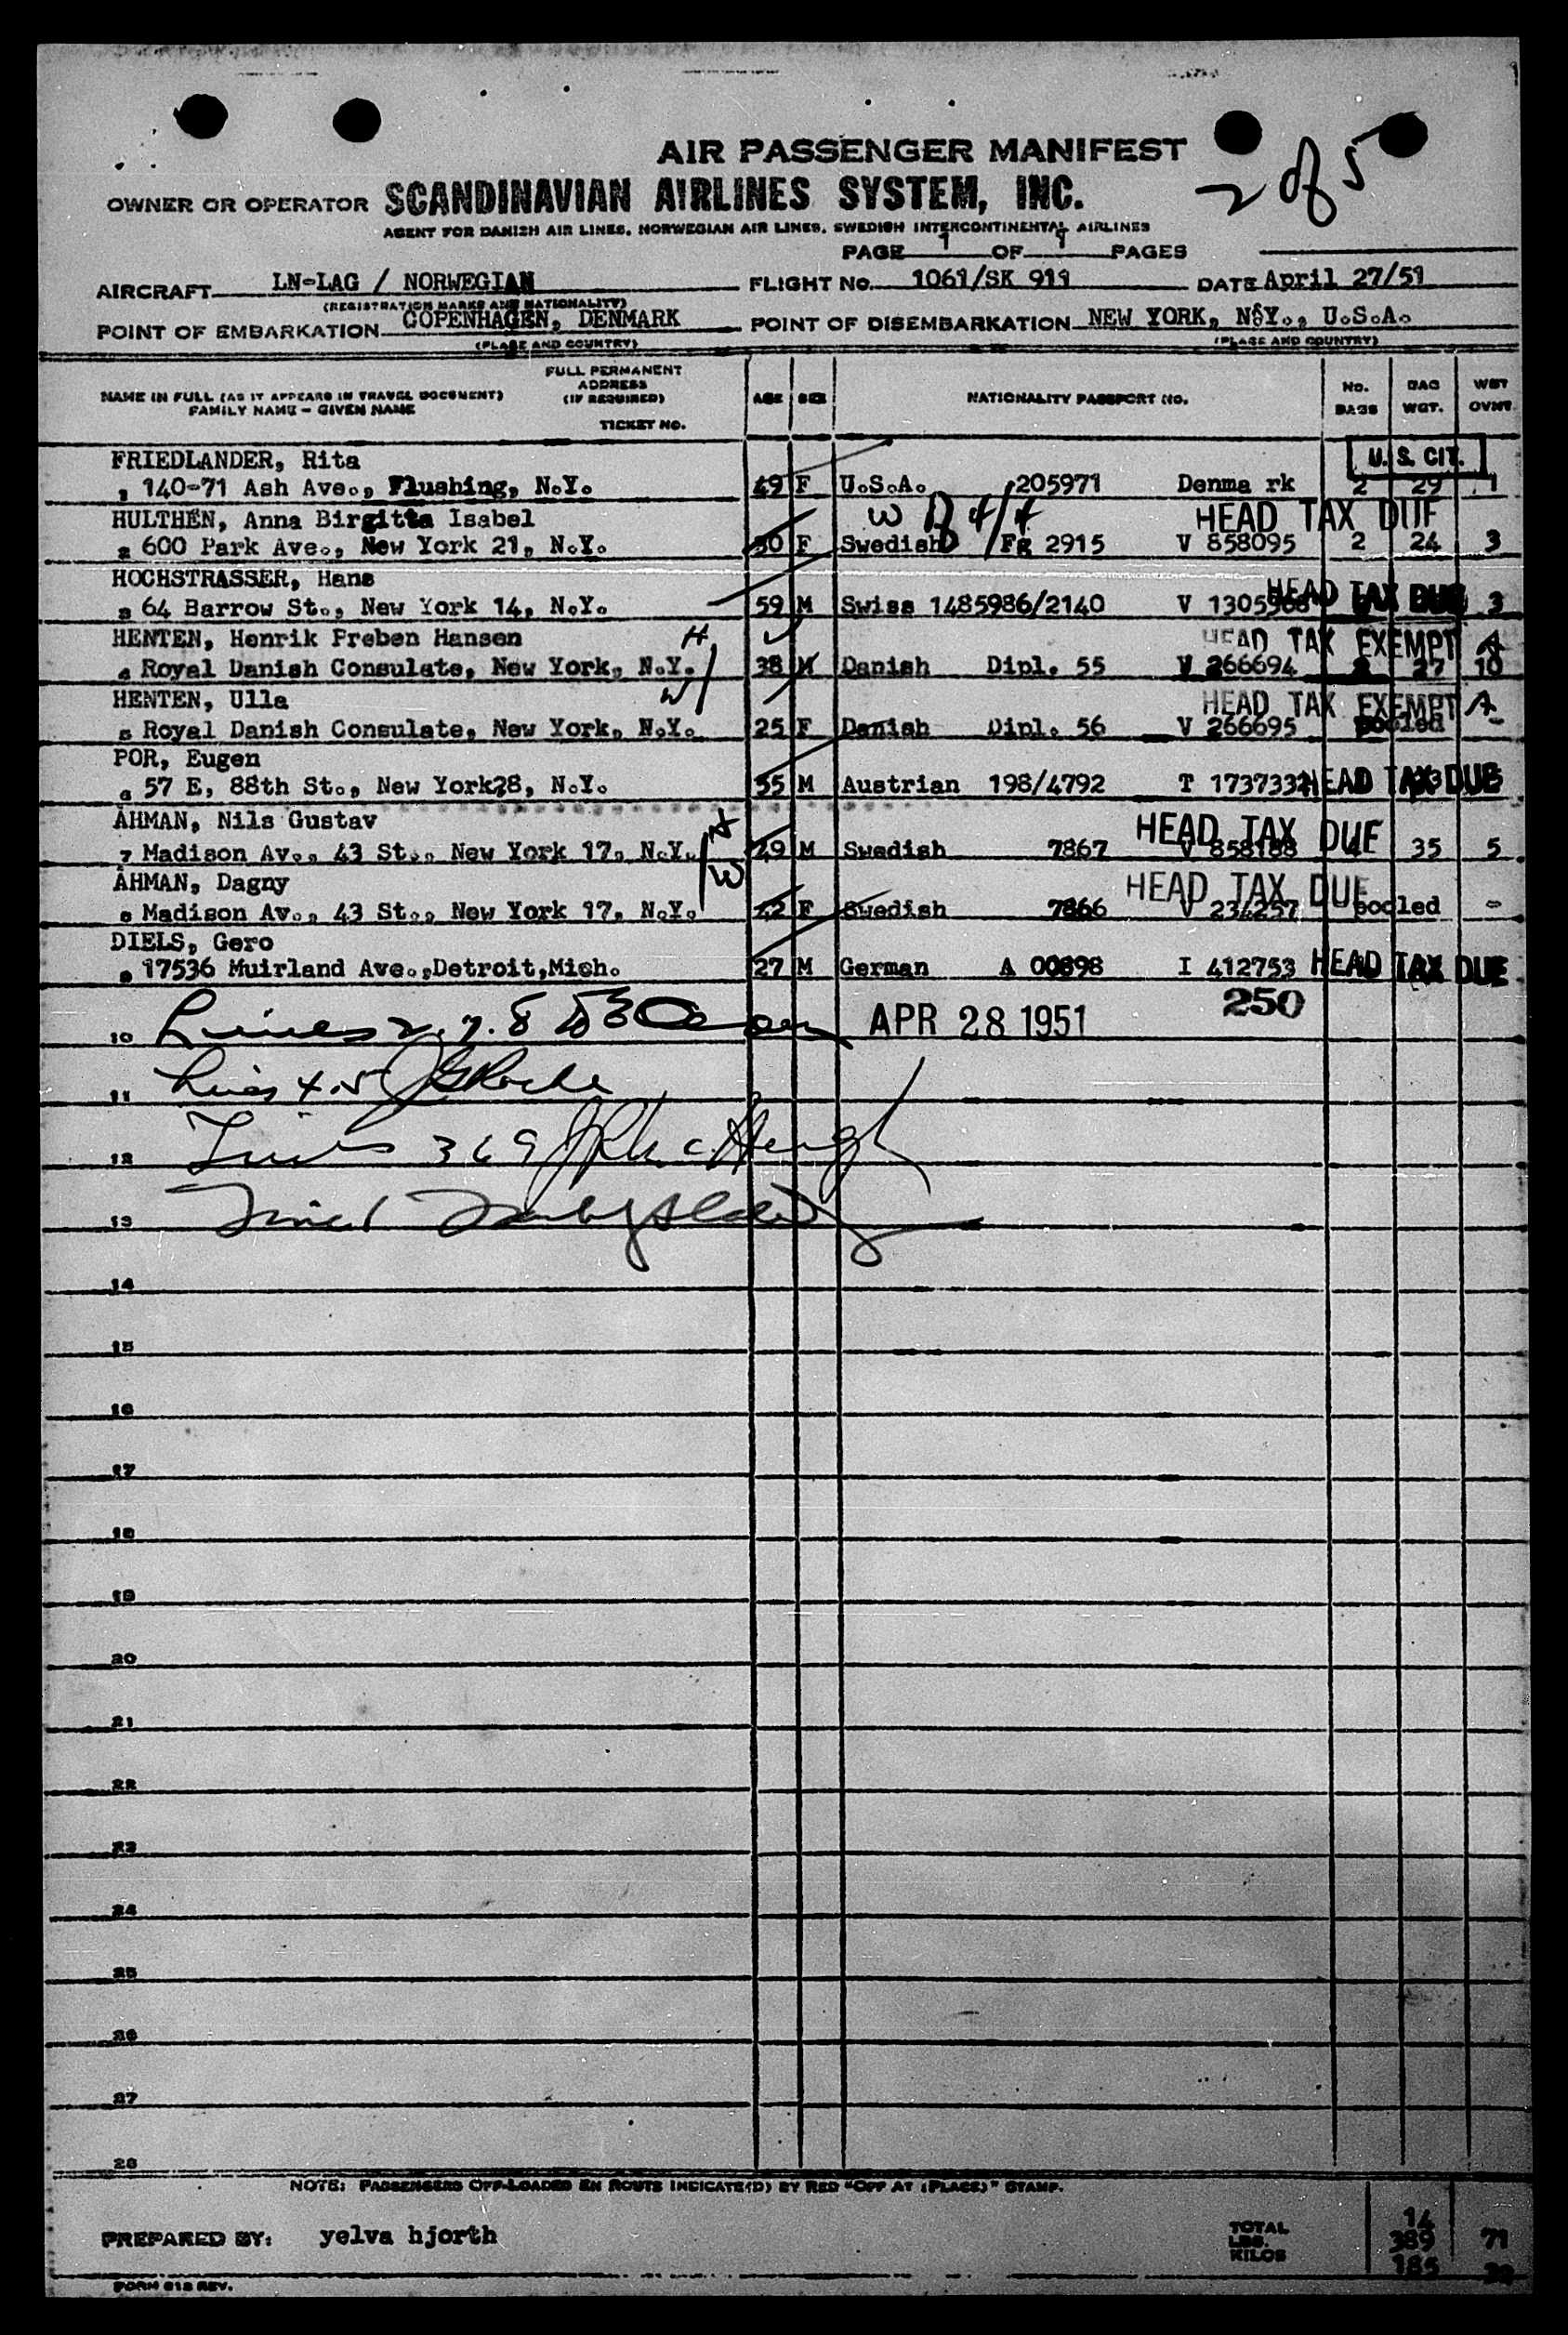 2 of 5
AIR PASSENGER MANIFEST
OWNER OR OPERATOR SCANDINAVIAN AIRLINES SYSTEM, INC.
AGENT FOR DANISH AIR LINES, NORWEGIAN AIR LINES, SWEDISH INTERCONTINENTAL AIRLINES
PAGE 1 OF 1 PAGES
AIRCRAFT LN-LAG / NORWEGIAN FLIGHT NO. 1061/SK 911 DATE April 27/51
(REGISTRATION MARKS AND NATIONALITY)
POINT OF EMBARKATION COPENHAGEN, DENMARK POINT OF DISEMBARKATION NEW YORK, N§Y., U.S.A.
(PLACE AND COUNTRY) (PLACE AND COUNTRY)
NAME IN FULL (AS IT APPEARS IN TRAVEL DOCUMENT) FAMILY NAME - GIVEN NAME
FULL PERMANENT ADDRESS (IF REQUIRED)
TICKET NO.
AGE SEX NATIONALITY PASSPORT NO. NO. BAGS BAG WGT. WGT OVNT
FRIEDLANDER, Rita U.S. CIT.
1 140-71 Ash Ave., Flushing, N.Y. 49 F U.S.A. 205971 Denma rk 2 29 1
HULTHÉN, Anna Birgitta Isabel W HEAD TAX DUE
2 600 Park Ave., New York 21, N.Y. 30 F Swedish FR 2915 V 858095 2 24 3
HOCHSTRASSER, Hans HEAD TAX DUE
3 64 Barrow St., New York 14, N.Y. 59 M Swiss 1485986/2140 V 3
HENTEN, Henrik Preben Hansen H HEAD TAX EXEMPT A
4 Royal Danish Consulate, New York, N.Y. 38 M Danish Dipl. 55 V 266694 2 27 10
HENTEN, Ulla W HEAD TAX EXEMPT A
5 Royal Danish Consulate, New York, N.Y. 25 F Danish Dipl. 56 V 266695 pooled -
POR, Eugen
6 57 E, 88th St., New York28, N.Y. 55 M Austrian 198/4792 T 1737332 HEAD TAX DUE
ÅHMAN, Nils Gustav H HEAD TAX DUE
7 Madison Av., 43 St., New York 17, N.Y. 49 M Swedish 7867 V 858188 35 5
ÅHMAN, Dagny W HEAD TAX DUE
8 Madison Av., 43 St., New York 17, N.Y. 42 F Swedish 7866 V 234257 pooled -
DIELS, Gero
9 17536 Muirland Ave.,Detroit,Mich. 27 M German A 00898 I 412753 HEAD TAX DUE
250
10 Lines 2.7.8 APR 28 1951
11 Lines 4.5
12 Lines 3 6 9
13 Line 1
14
15
16
17
18
19
20
21
22
23
24
25
26
27
28
NOTE: PASSENGERS OFF-LOADED EN ROUTE INDICATE(D) BY RED "OFF AT (PLACE)" STAMP.
PREPARED BY: yelva hjorth
TOTAL 14
LBS. 389 71
KILOS 185
FORM 612 REV.